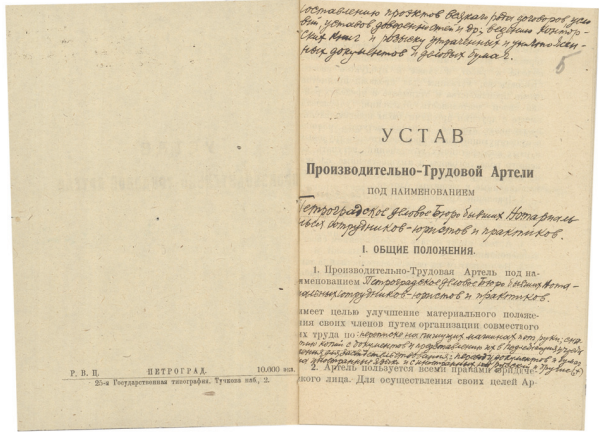 Р. В. Ц. ПЕТРОГРАД. 10.000 экз.
25-я Государственная типография. Тучкова наб., 2.
составлению проэктов всякаго рода договоров усло
вий, уставов доверенностей и др; ведению контор-
ских книг и розыску утраченных и уничтожен-
ных документов и деловых бумаг.
5
УСТАВ
Производительно-Трудовой Артели
ПОД НАИМЕНОВАНИЕМ
Петроградское деловое Бюро бывших Нотариаль
сотрудников-юристов и практиков.
I. ОБЩИЕ ПОЛОЖЕНИЯ.
1. Производительно-Трудовая Артель под на-
именованием Петроградское деловое Бюро бывших Нота-
риальных сотрудников-юристов и практиков.
имеет целью улучшение материального положе-
ния своих членов путем организации совместного
их труда по: переписке на пишущих машинах
копий с документов и представлению их в
переводу документов и бумаг
на иностранные языки и с иностранных
2. Артель пользуется всеми правами юридиче-
ского лица. Для осуществления своих целей Ар-